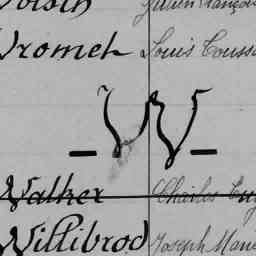 Voisin Julien François
Vromet Louis Touss
- W -
Walker Charles Eug
Willibrod Joseph Marie